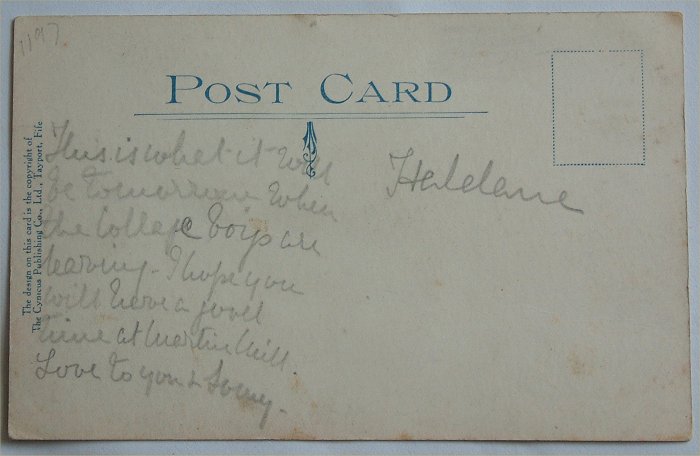 1197
POST CARD
The design on this card is the copyright of
The Cynicus Publishing Co., Ltd., Tayport, Fife
This is what it will
be tomorrow when
the College boys are
leaving - I hope you
will have a good
time at Martin Mill.
Love to you &
Haldane